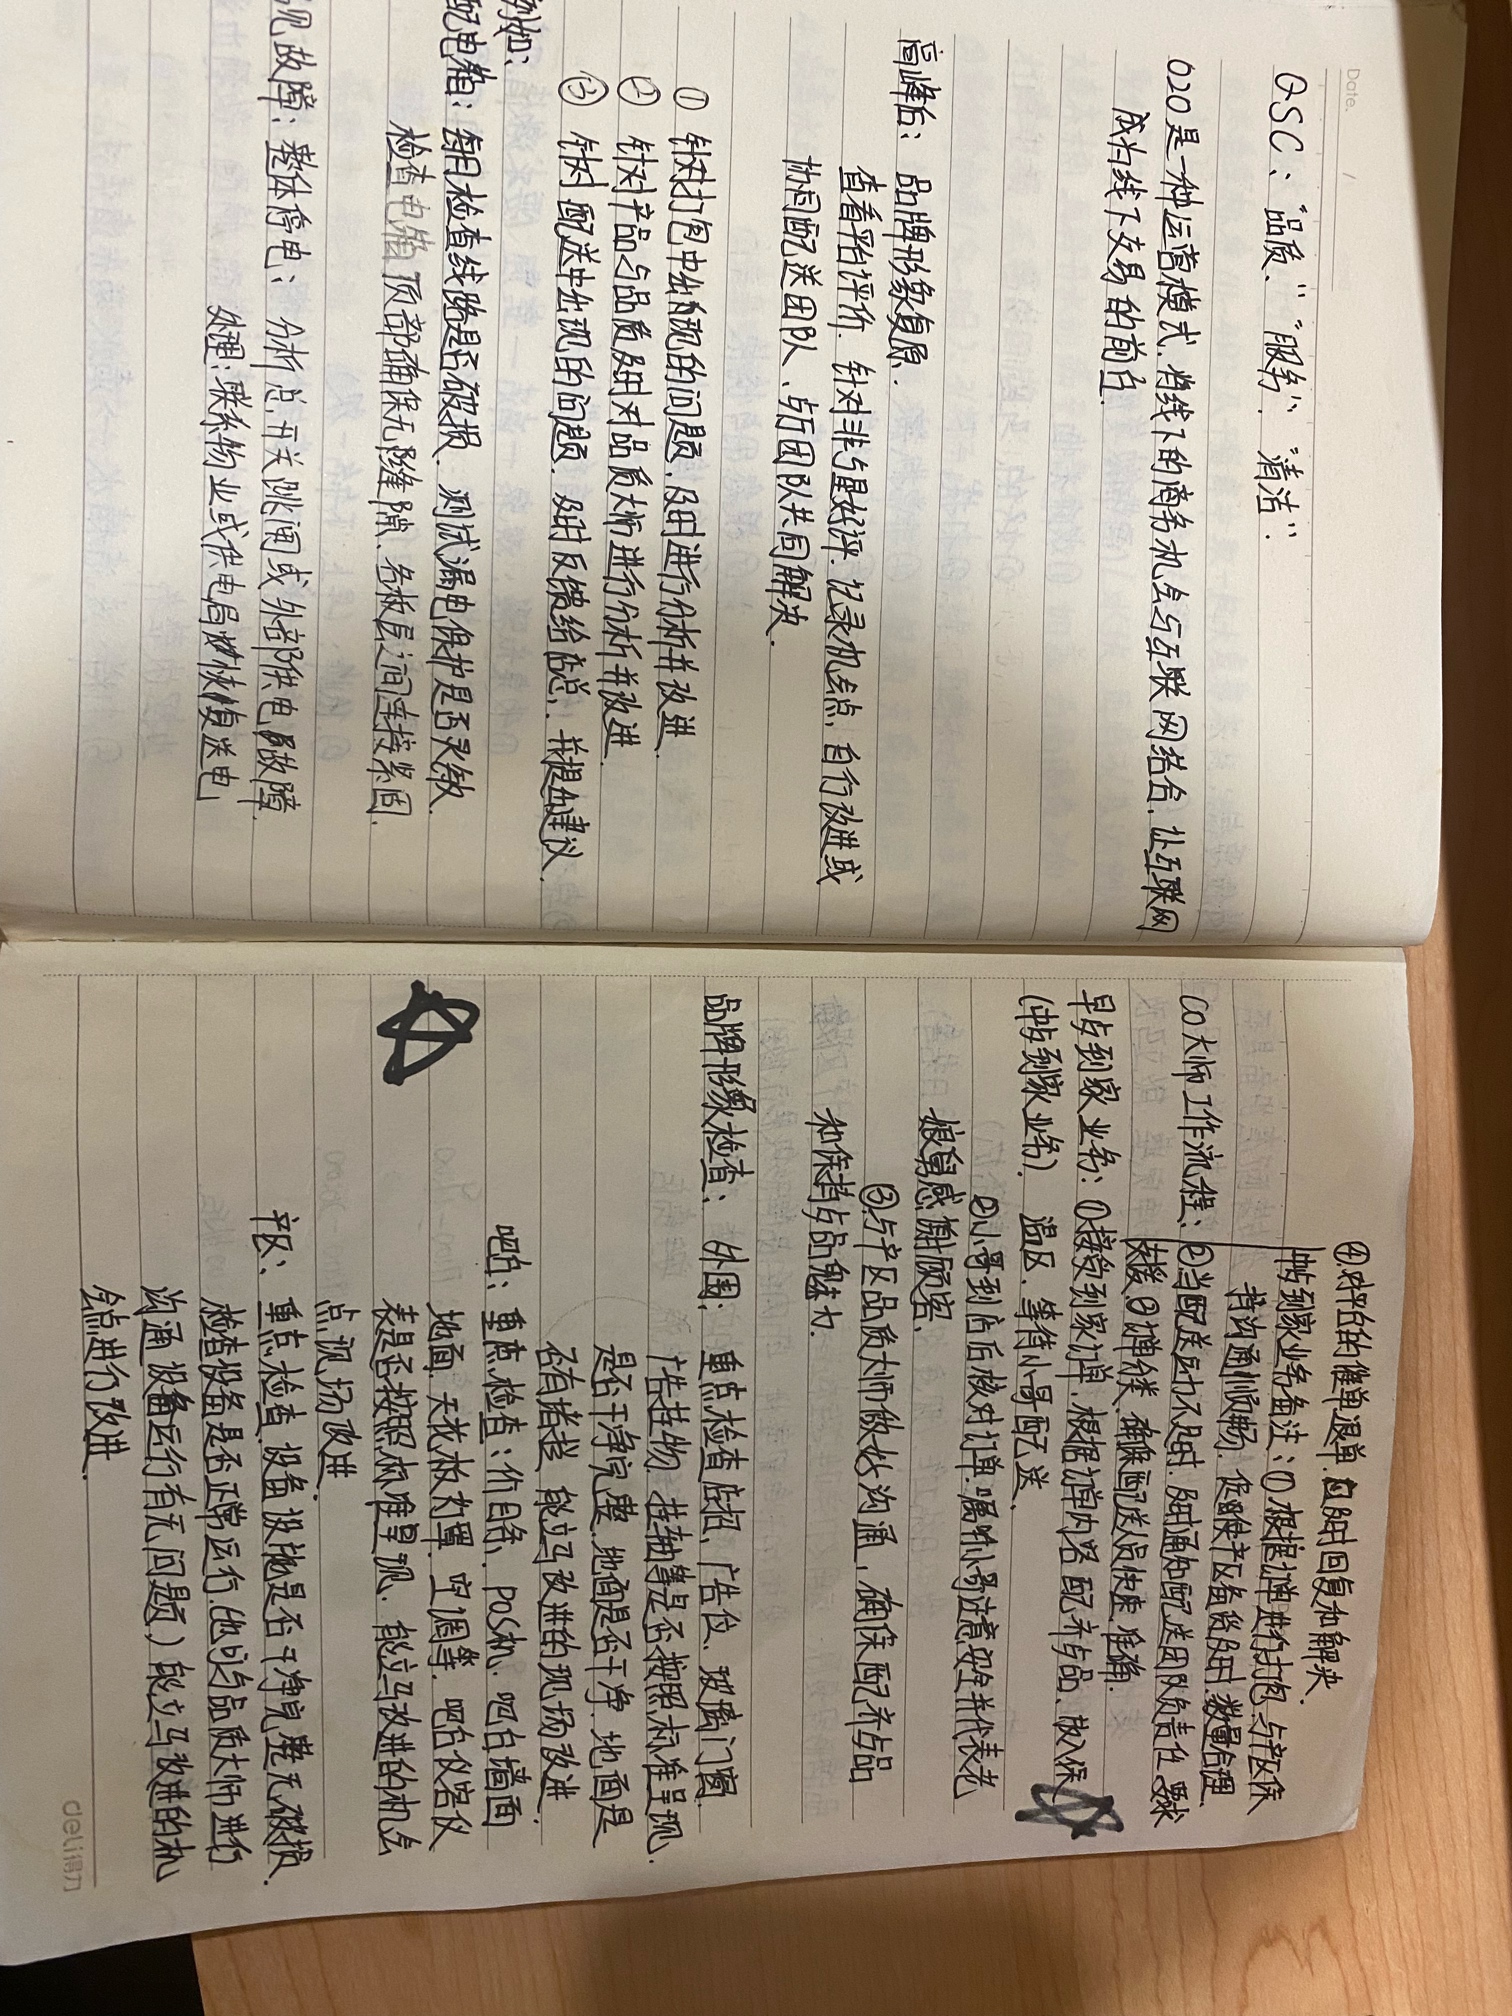 Date. /
QSC: "品质". "服务". "清洁".
O2O是一种运营模式.将线下的商务机会与互联网结合.让互联网
成为线下交易的前台.
高峰后: 品牌形象复原.
查看平台评价. 针对非5星好评.记录机会点,自行改进或
协同配送团队、与厅团队共同解决.
① 针对打包中出现的问题.及时进行分析并改进.
② 针对产品与品质及时对品质大师进行分析并改进.
③ 针对配送中出现的问题.及时反馈给总,并提出建议.
例如:
配电箱: 每日检查线路是否破损.测试漏电保护是否灵敏.
检查电箱顶部确保无隙缝隙.各板层之间连接紧固.
见故障: 整体停电: 分析总开关跳闸或外部供电故障.
处理:联系物业或供电局尽快恢复送电
④.对平台的催单退单应及时回复和解决.
中与到家业务备注:①根据订单进行打包.与产区保
持沟通顺畅.保障使产区备货及时.数量合理.
CO大师工作流程: ②当配送压力不及时.及时通知配送团队负责任.要求
支援③订单分类.确保配送人员快速.准确.
早与到家业务:①接受到家订单.根据订单内容配齐与品.放入保
(中与到家业务). 温区.等待小哥配送.
②小哥到店后核对订单.嘱咐小哥注意安全并代表老
娘舅感谢顾客.
③与产区品质大师做好沟通,确保配齐与品
和保持与品魅力.
品牌形象检查: 外围: 重点检查店招、广告位.玻璃门窗.
广告挂物.挂轴等是否按照标准呈现.
是否干净完整.地面是否干净.地面是
否有堵挡 能立马改进的现场改进.
吧台: 重点检查:价目条、POS机.吧台墙面
地面.天花板灯罩.空调等.吧台仪容仪
表是否按照标准呈现.能立马改进的机会
点现场改进.
产区: 重点检查.设备设施是否干净完整无破损.
检查设备是否正常运行.(也可与品质大师进行
沟通设备运行有无问题)能立马改进的机
会点进行改进.
deli得力